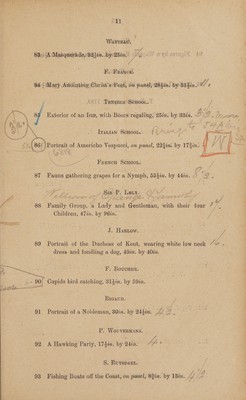 11
WATTEAU.
83 A Masquerade, 32½in. by 25in.
F. FRENCK.
84 Mary Anointing Christ's Feet, on panel, 28½in. by 21½in.
TENIERS SCHOOL.
85 Exterior of an Inn, with Boors regaling, 25in. by 32in.
ITALIAN SCHOOL.
86 Portrait of Americho Vespucci, on panel, 22½in. by 17½in.
M
FRENCH SCHOOL.
87 Fauns gathering grapes for a Nymph, 55½in. by 44in.
SIR P. LELY.
88 Family Group, a Lady and Gentleman, with their four
Children, 47in. by 96in.
J. HARLOW.
89 Portrait of the Duchess of Kent, wearing white low neck
dress and fondling a dog, 49in. by 40in.
F. BOUCHER.
90 Cupids bird catching, 31½in. by 39in.
91 Portrait of a Nobleman, 30in. by 24½in.
P. WOUVERMANS.
92 A Hawking Party, 17½in. by 24in.
S. RUYSDAEL.
93 Fishing Boats off the Coast, on panel, 8½in. by 13in.